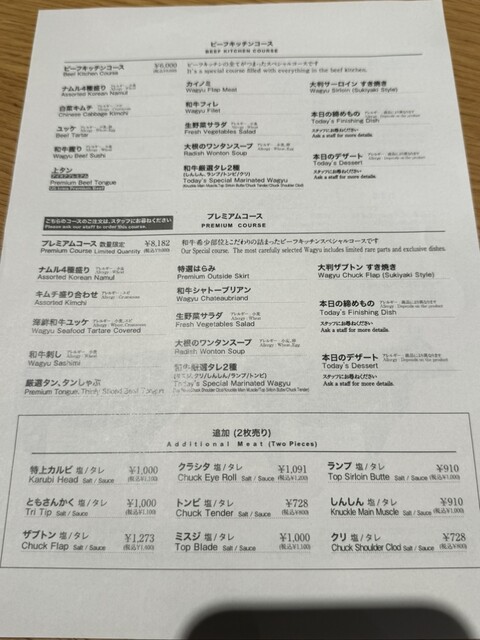 ビーフキッチンコース
BEEF KITCHEN COURSE
ビーフキッチンコース ¥6,000
Beef Kitchen Course
ビーフキッチンの全てがつまったスペシャルコースです
It's a special course filled with everything in the beef kitchen.
ナムル4種盛り
Assorted Korean Namul
白菜キムチ
Chinese Cabbage Kimchi
ユッケ
Beef Tartar
和牛握り
Wagyu Beef Sushi
上タン
Premium Beef Tongue
カイノミ
Wagyu Flap Meat
和牛フィレ
Wagyu Filet
生野菜サラダ
Fresh Vegetables Salad
大根のワンタンスープ
Radish Wonton Soup
和牛厳選タレ2種
(しんしん、クリ/しんしん/ランプ/トンビ)
Today's Special Marinated Wagyu
大判サーロイン すき焼き
Wagyu Sirloin (Sukiyaki Style)
本日の締めもの
Today's Finishing Dish
スタッフにお尋ねください
Ask a staff for more details.
本日のデザート
Today's Dessert
スタッフにお尋ねください
Ask a staff for more details.
こちらのコースのご注文は、スタッフにお尋ねください
Please ask our staff to order this course.
プレミアムコース
PREMIUM COURSE
プレミアムコース 数量限定 ¥8,182
Premium Course Limited Quantity
和牛希少部位とこだわりの詰まったビーフキッチンスペシャルコースです
Our Special course. The most carefully selected Wagyu includes limited rare parts and exclusive dishes.
ナムル4種盛り
Assorted Korean Namul
キムチ盛り合わせ
Assorted Kimchi
海鮮和牛ユッケ
Wagyu Seafood Tartare Covered
和牛刺し
Wagyu Sashimi
厳選タン、タンしゃぶ
Premium Tongue, Thinly Sliced Beef Tongue
特選はらみ
Premium Outside Skirt
和牛シャトーブリアン
Wagyu Chateaubriand
生野菜サラダ
Fresh Vegetables Salad
大根のワンタンスープ
Radish Wonton Soup
和牛厳選タレ2種
Today's Special Marinated Wagyu
大判ザブトン すき焼き
Wagyu Chuck Flap (Sukiyaki Style)
本日の締めもの
Today's Finishing Dish
スタッフにお尋ねください
Ask a staff for more details.
本日のデザート
Today's Dessert
スタッフにお尋ねください
Ask a staff for more details.
追加 (2枚売り)
Additional Meat (Two Pieces)
特上カルビ 塩/タレ ¥1,000
Karubi Head Salt / Sauce (税込¥1,100)
クラシタ 塩/タレ ¥1,091
Chuck Eye Roll Salt / Sauce (税込¥1,200)
ランプ 塩/タレ ¥910
Top Sirloin Butte Salt / Sauce
ともさんかく 塩/タレ ¥1,000
Tri Tip Salt / Sauce (税込¥1,100)
トンビ 塩/タレ ¥728
Chuck Tender Salt / Sauce (税込¥800)
しんしん 塩/タレ ¥910
Knuckle Main Muscle Salt / Sauce
ザブトン 塩/タレ ¥1,273
Chuck Flap Salt / Sauce (税込¥1,400)
ミスジ 塩/タレ ¥1,000
Top Blade Salt / Sauce (税込¥1,100)
クリ 塩/タレ ¥728
Chuck Shoulder Clod Salt / Sauce (税込¥800)